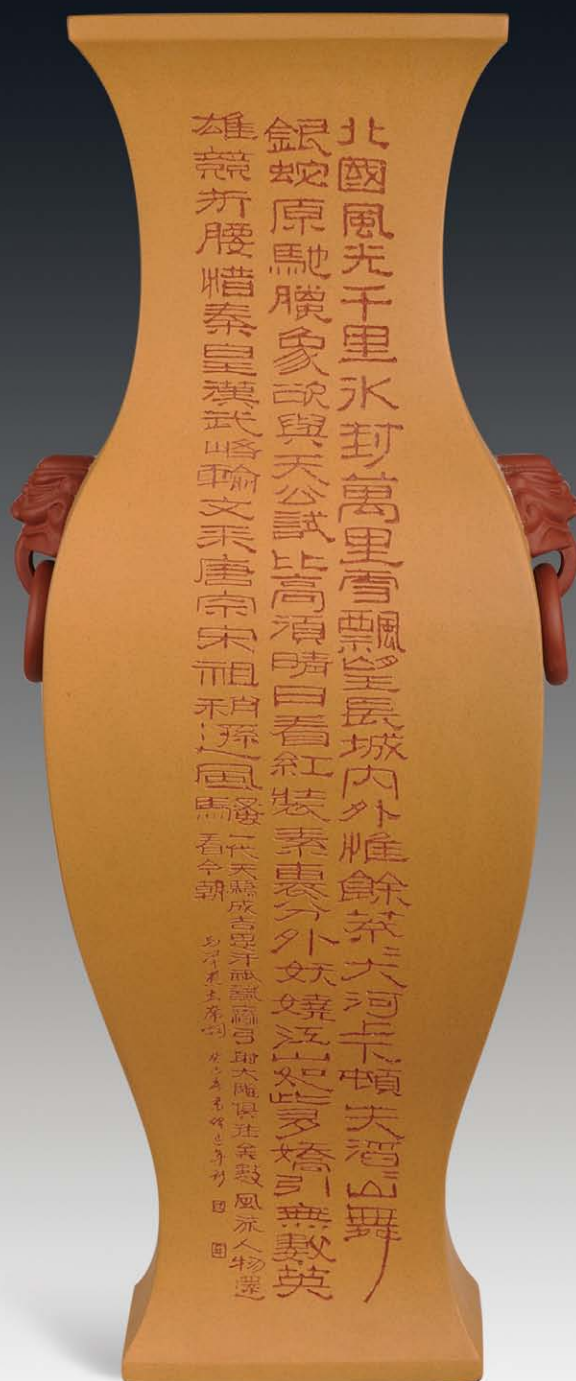 北國風光千里氷封萬里雪飄望長城內外惟餘莽〻大河上下頓失滔〻山舞
銀蛇原馳臘象欲與天公試比高須晴日看紅裝素裹分外妖嬈江山如此多嬌引無數英
雄競折腰惜秦皇漢武略輸文采唐宗宋祖稍遜風騷
一代天驕成吉思汗祇識彎弓射大雕俱往矣數風流人物還
看今朝